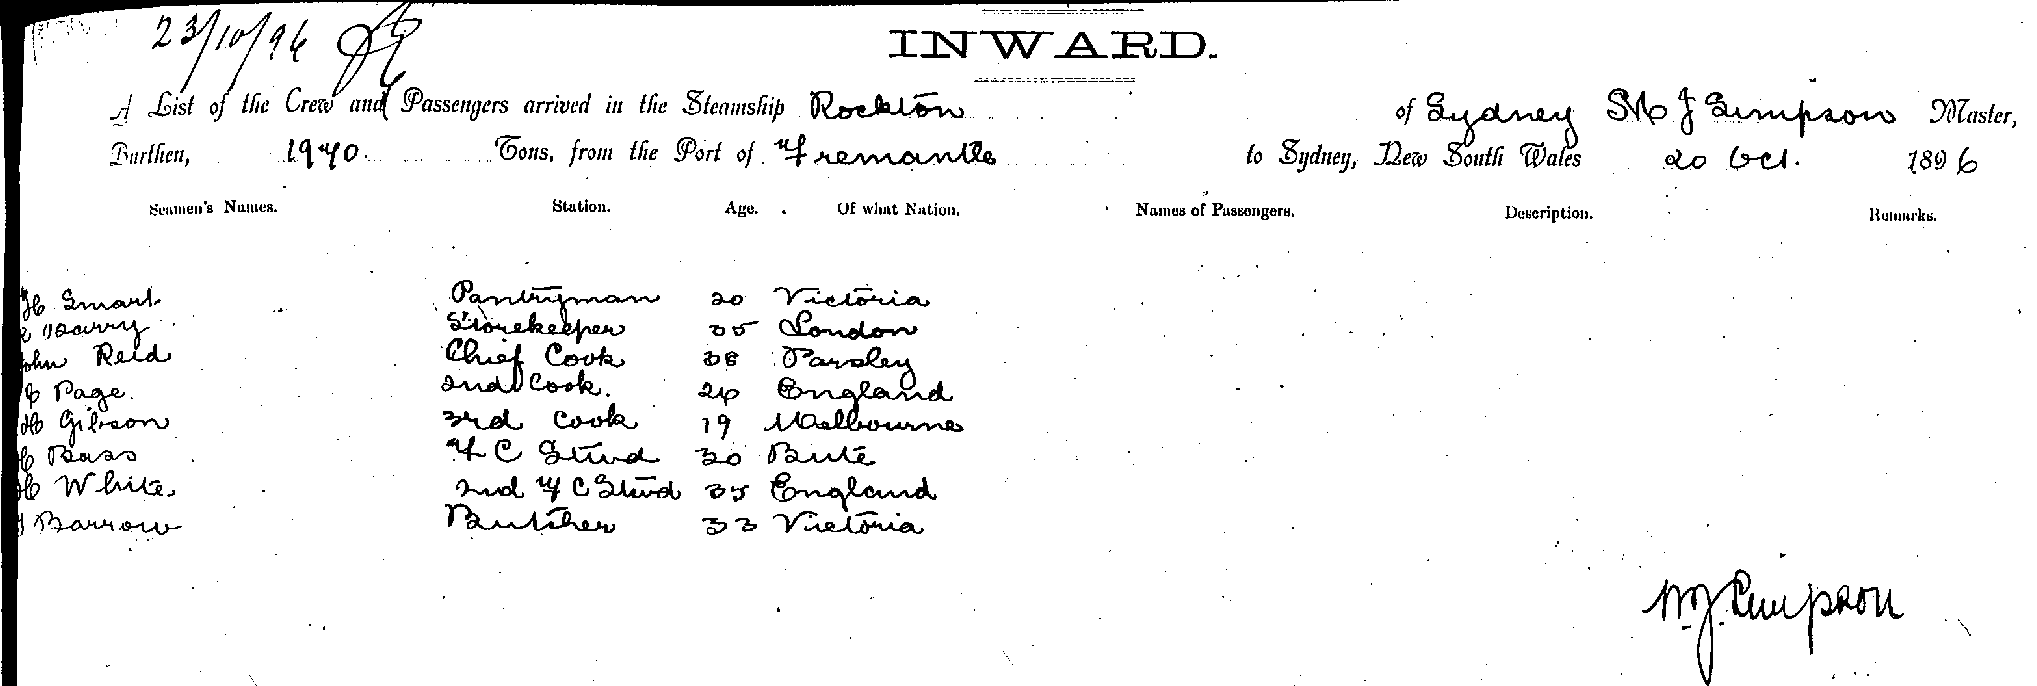 23/10/96
INWARD.
A List of the Crew and Passengers arrived in the Steamship Rockton of Sydney M J Simpson Master,
Burthen, 1940 Tons, from the Port of Fremantle to Sydney, New South Wales 20 Oct. 1896
Seamen's Names. Station. Age. Of what Nation. Names of Passengers. Description. Remarks.
H Smart Pantryman 20 Victoria
Barry Storekeeper 35 London
John Reid Chief Cook 38 Parsley
Page 2nd Cook. 26 England
H Gibson 3rd Cook 19 Melbourne
Bass F C Stwd 30 Bute
H White 2nd F C Stwd 35 England
Barrow Butcher 33 Victoria
M.J. Simpson